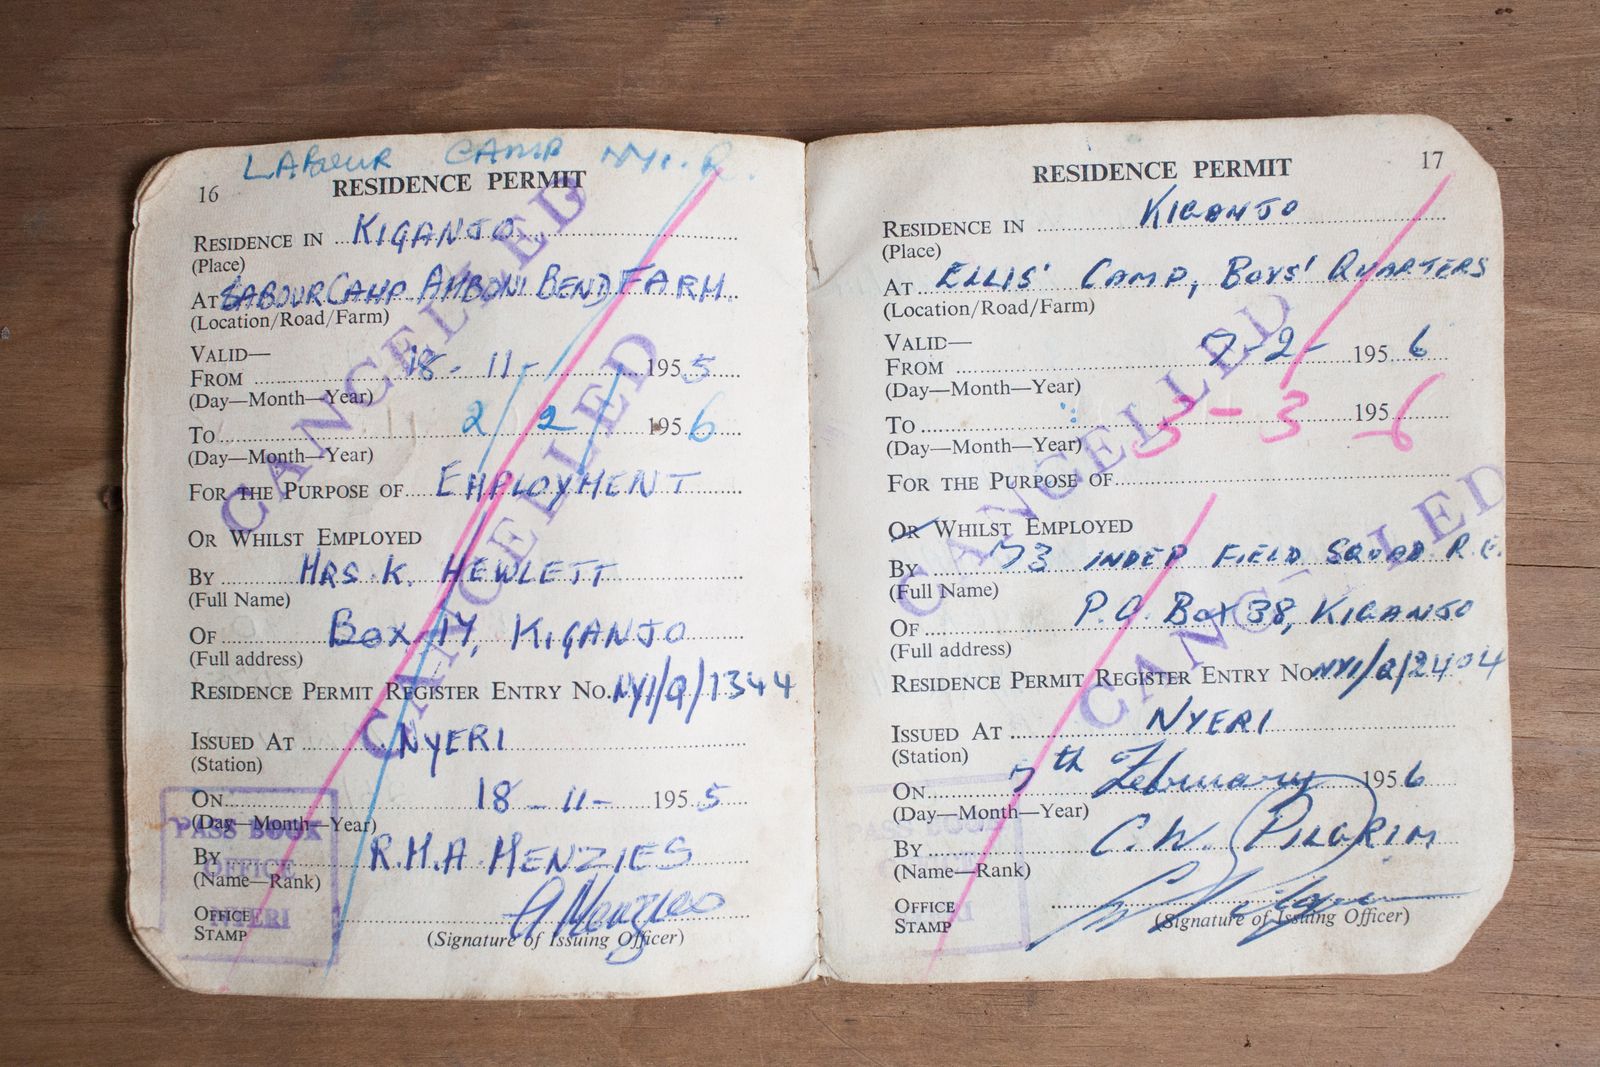 LABOUR CAMP NYI. R.
16
RESIDENCE PERMIT
RESIDENCE IN KIGANJO
(Place)
AT LABOUR CAMP AMBONI BEND FARM.
(Location/Road/Farm)
VALID—
FROM 18 - 11 - 1955
(Day—Month—Year)
TO 2 / 2 / 1956
(Day—Month—Year)
FOR THE PURPOSE OF EMPLOYMENT
OR WHILST EMPLOYED
BY MRS. K. HEWLETT
(Full Name)
OF BOX 17, KIGANJO
(Full address)
RESIDENCE PERMIT REGISTER ENTRY NO. NYI/Q/1344
ISSUED AT NYERI
(Station)
ON 18 - 11 - 1955
(Day—Month—Year)
BY R.M.A. MENZIES
(Name—Rank)
OFFICE
STAMP
(Signature of Issuing Officer)
PASS BOOK
OFFICE
NYERI
CANCELLED
CANCELLED
17
RESIDENCE PERMIT
RESIDENCE IN KIGANJO
(Place)
AT ELLIS' CAMP, BOYS' QUARTERS
(Location/Road/Farm)
VALID—
FROM 7-2- 1956
(Day—Month—Year)
TO 3 - 3 - 1956
(Day—Month—Year)
FOR THE PURPOSE OF
OR WHILST EMPLOYED
BY 73 INDEP FIELD SQUAD R.E.
(Full Name)
OF P.O. BOX 38, KIGANJO
(Full address)
RESIDENCE PERMIT REGISTER ENTRY NO. NYI/Q/2404
ISSUED AT NYERI
(Station)
ON 7th February 1956
(Day—Month—Year)
BY C. W. PILGRIM
(Name—Rank)
OFFICE
STAMP
(Signature of Issuing Officer)
PASS BOOK
CANCELLED
CANCELLED